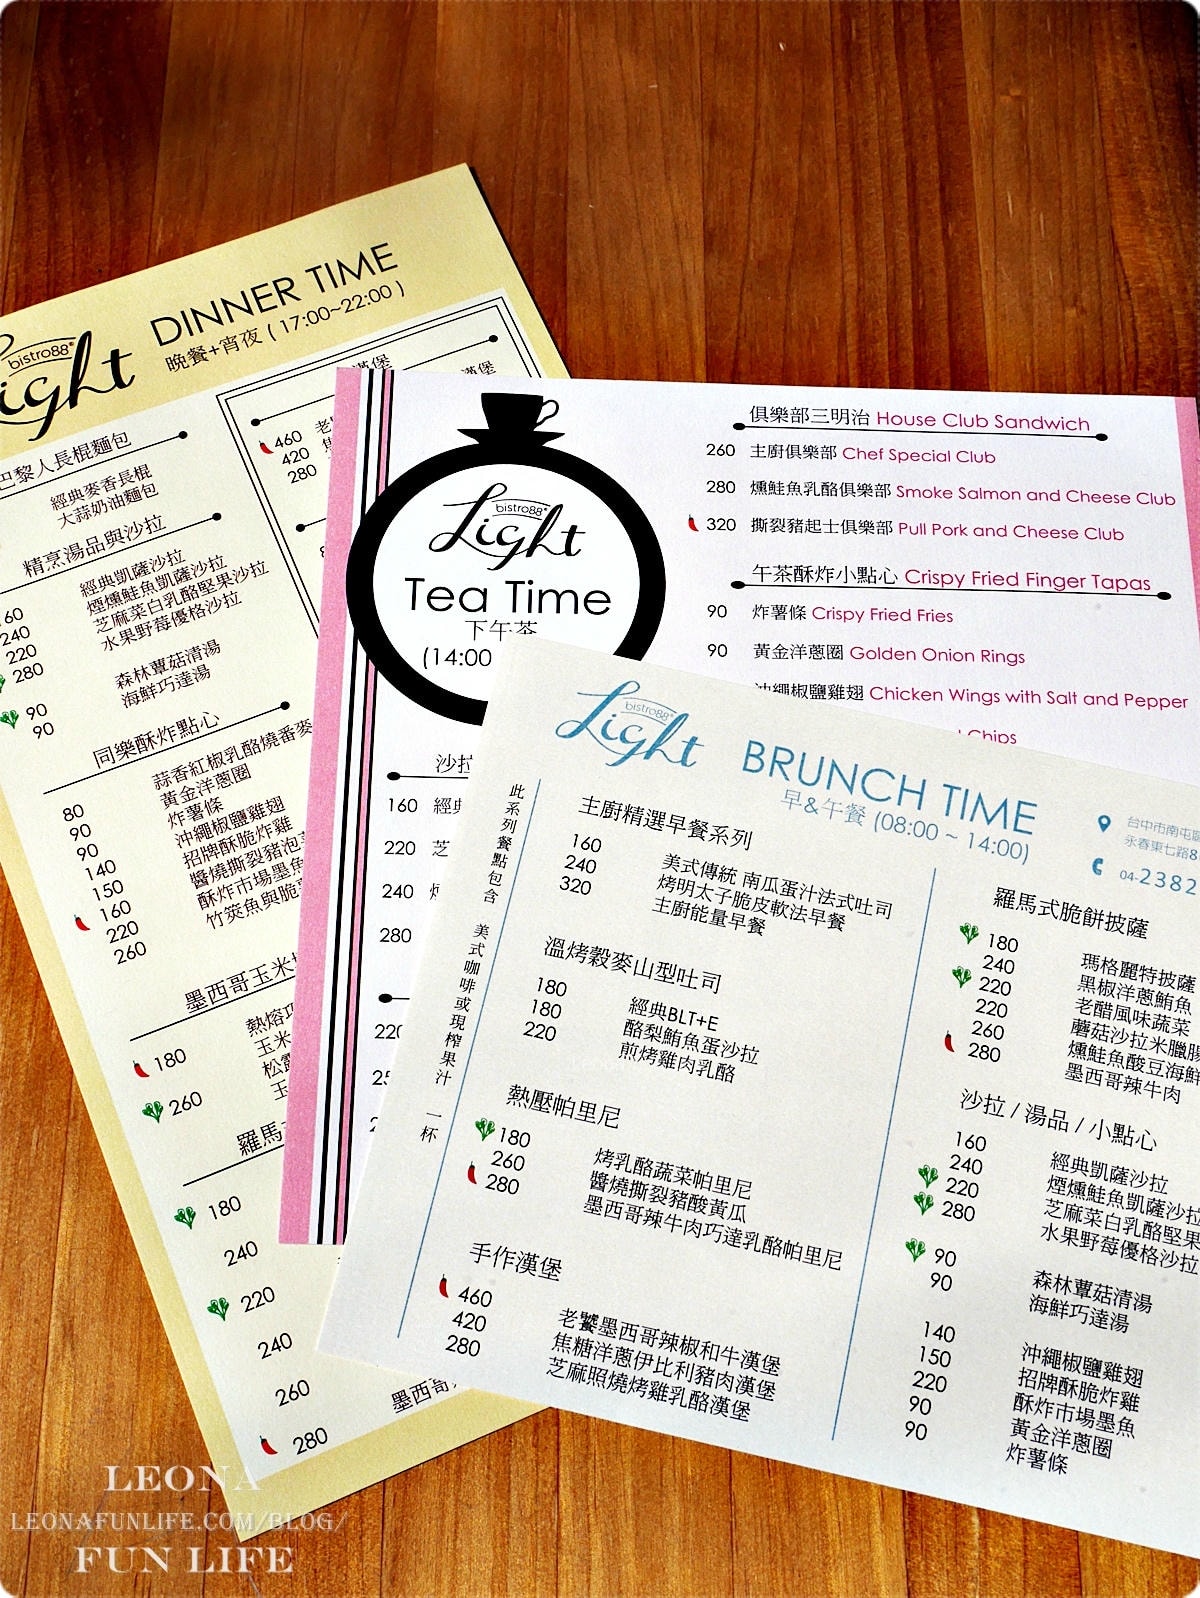 bistro88®
Light
DINNER TIME
晚餐+宵夜 ( 17:00~22:00 )
巴黎人長棍麵包
經典麥香長棍
大蒜奶油麵包
精烹湯品與沙拉
160 經典凱薩沙拉
240 煙燻鮭魚凱薩沙拉
220 芝麻菜白乳酪堅果沙拉
280 水果野莓優格沙拉
90 森林蕈菇清湯
90 海鮮巧達湯
同樂酥炸點心
80 蒜香紅椒乳酪燒番麥
90 黃金洋蔥圈
90 炸薯條
140 沖繩椒鹽雞翅
150 招牌酥脆炸雞
160 醬燒撕裂豬泡
220 酥炸市場墨魚
260 竹筴魚與脆
墨西哥玉米
180 熱熔
玉米
260 松露
玉
羅馬
180
240
220
240
260
280 墨西哥
漢堡
460 老
420 焦
280
bistro88®
Light
Tea Time
下午茶
(14:00
俱樂部三明治 House Club Sandwich
260 主廚俱樂部 Chef Special Club
280 燻鮭魚乳酪俱樂部 Smoke Salmon and Cheese Club
320 撕裂豬起士俱樂部 Pull Pork and Cheese Club
午茶酥炸小點心 Crispy Fried Finger Tapas
90 炸薯條 Crispy Fried Fries
90 黃金洋蔥圈 Golden Onion Rings
沖繩椒鹽雞翅 Chicken Wings with Salt and Pepper
Chips
沙拉
160 經典
220 芝
240 煙
280
220
bistro88®
Light
BRUNCH TIME
早&午餐 (08:00 ~ 14:00)
台中市南屯區
永春東七路8
04-2382
此系列餐點包含 美式咖啡或現榨果汁 一杯
主廚精選早餐系列
160 美式傳統 南瓜蛋汁法式吐司
240 烤明太子脆皮軟法早餐
320 主廚能量早餐
溫烤穀麥山型吐司
180 經典BLT+E
180 酪梨鮪魚蛋沙拉
220 煎烤雞肉乳酪
熱壓帕里尼
180 烤乳酪蔬菜帕里尼
260 醬燒撕裂豬酸黃瓜
280 墨西哥辣牛肉巧達乳酪帕里尼
手作漢堡
460 老饕墨西哥辣椒和牛漢堡
420 焦糖洋蔥伊比利豬肉漢堡
280 芝麻照燒烤雞乳酪漢堡
羅馬式脆餅披薩
180 瑪格麗特披薩
240 黑椒洋蔥鮪魚
220 老醋風味蔬菜
220 蘑菇沙拉米臘腸
260 燻鮭魚酸豆海鮮
280 墨西哥辣牛肉
沙拉 / 湯品 / 小點心
160 經典凱薩沙拉
240 煙燻鮭魚凱薩沙拉
220 芝麻菜白乳酪堅果
280 水果野莓優格沙拉
90 森林蕈菇清湯
90 海鮮巧達湯
140 沖繩椒鹽雞翅
150 招牌酥脆炸雞
220 酥炸市場墨魚
90 黃金洋蔥圈
90 炸薯條
LEONA
LEONAFUNLIFE.COM/BLOG/
FUN LIFE